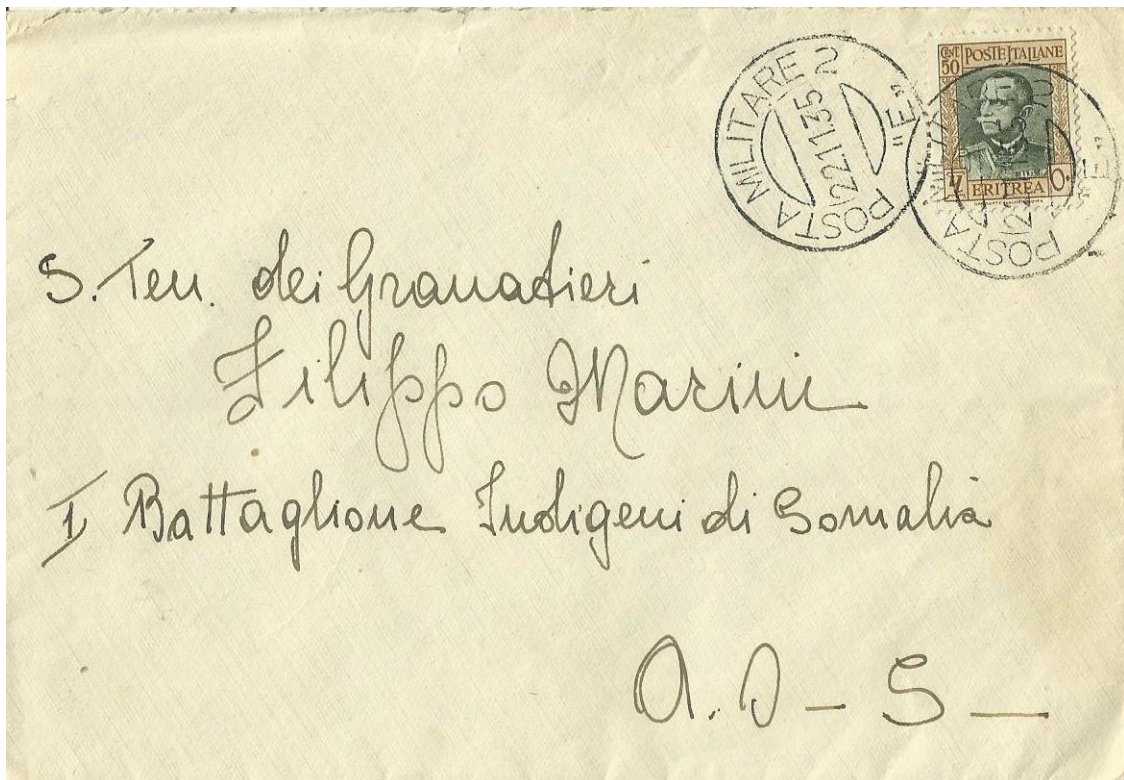 POSTA MILITARE 2
22.11.35
"E"
CENT 50 POSTE ITALIANE
ERITREA
POSTA
"E"
S. Ten. dei Granatieri
Filippo Marini
I Battaglione Indigeni di Somalia
A. O - S -